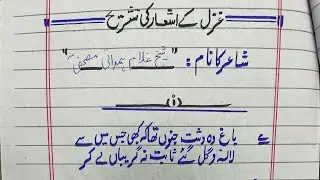 غزل کے اشعار کی تشریح
شاعر کا نام : "شیخ غلام ہمدانی مصحفی"
(۱)
باغ وہ دشتِ جنوں تھا کہ کبھی جس میں سے
لالہ و گل گئے ثابت نہ گریباں لے کر